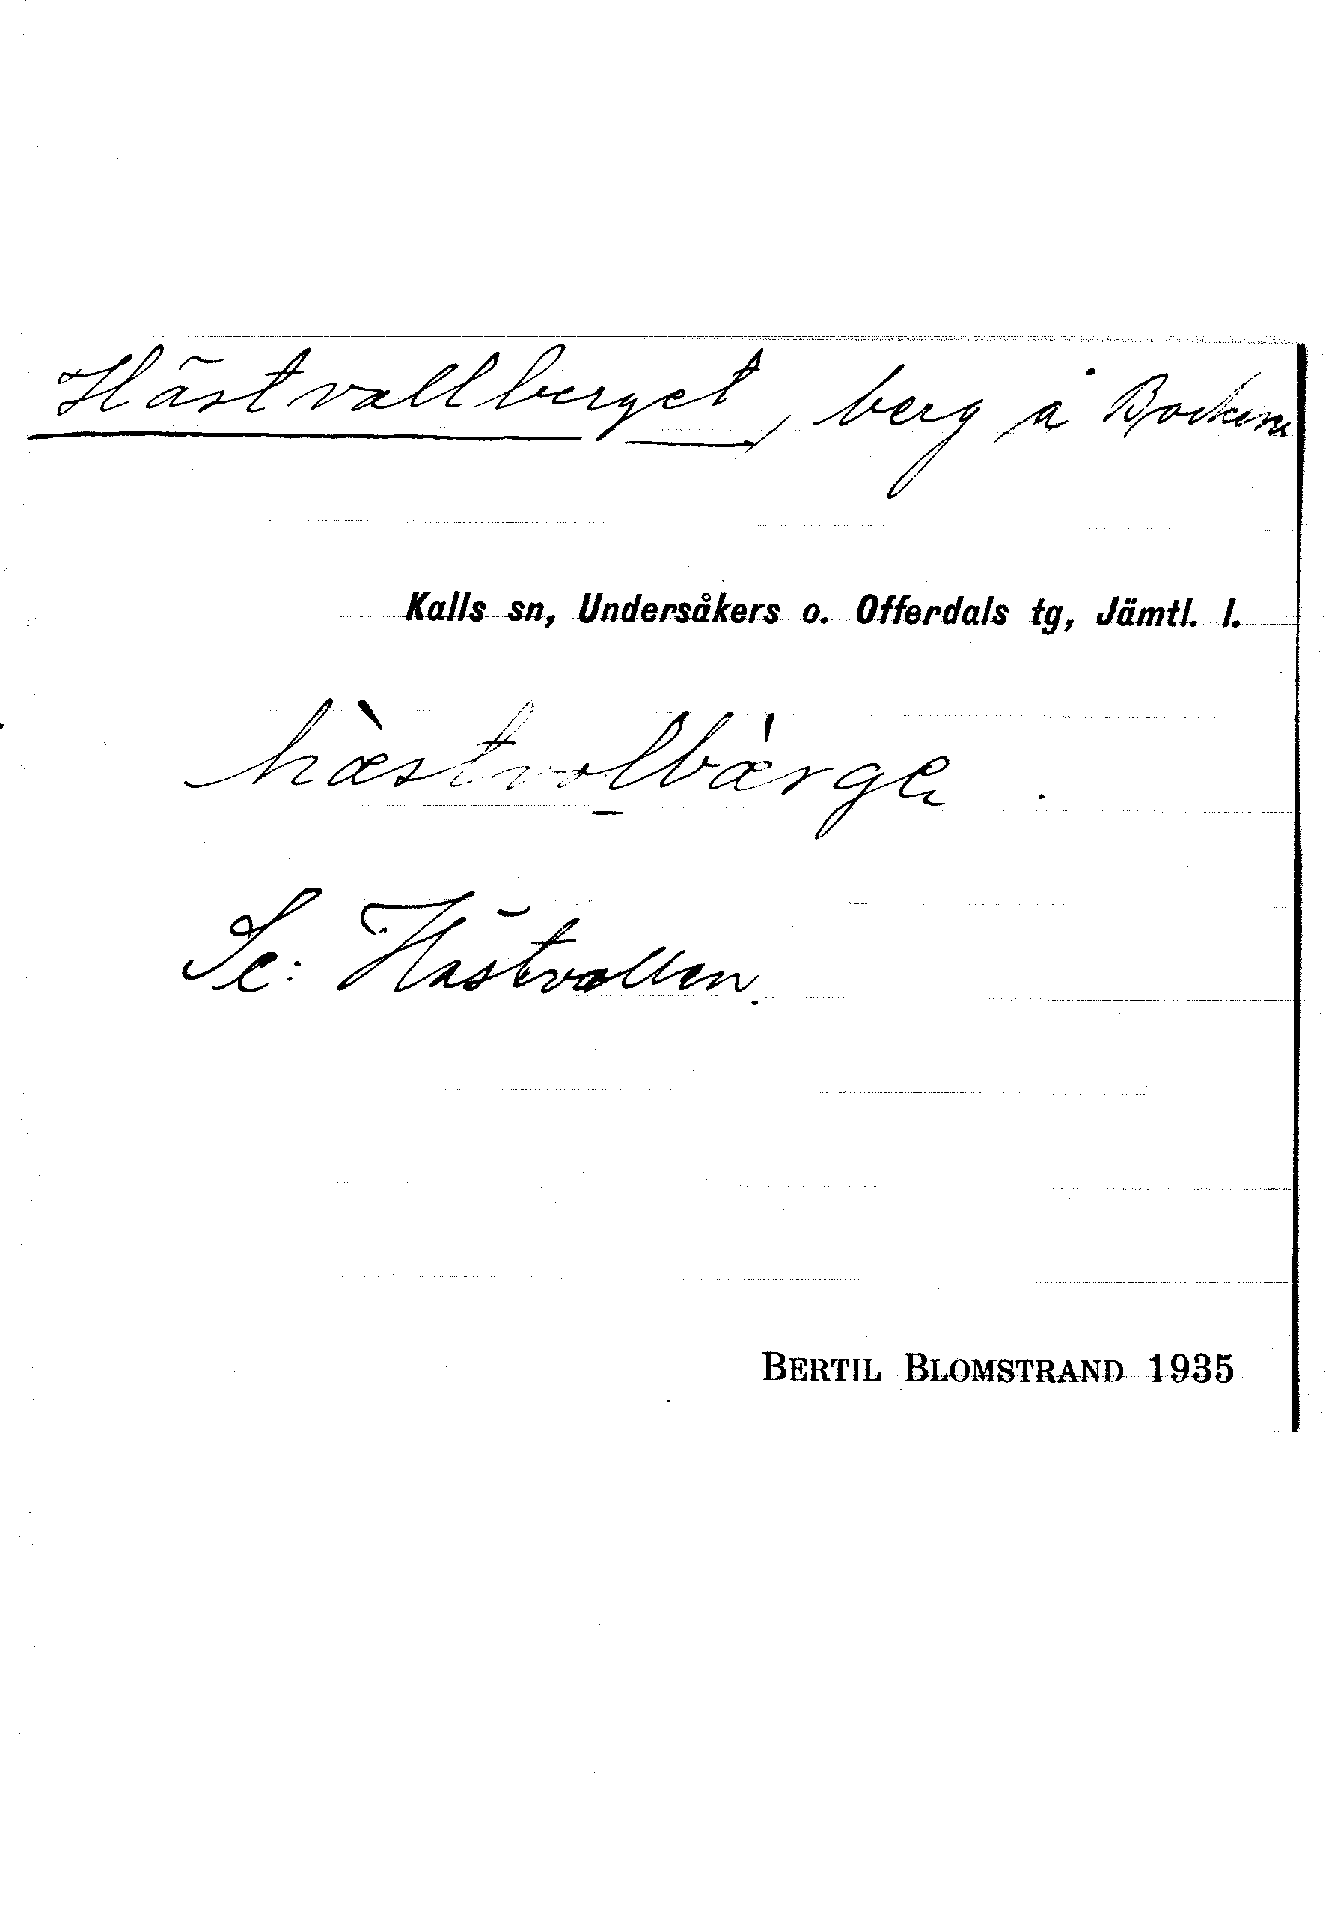 Hästvallberget, berg å Bockens
Kalls sn, Undersåkers o. Offerdals tg, Jämtl. l.
hæ̀stvo̱lbæ̀rge
Se: Hästvallen.
BERTIL BLOMSTRAND 1935